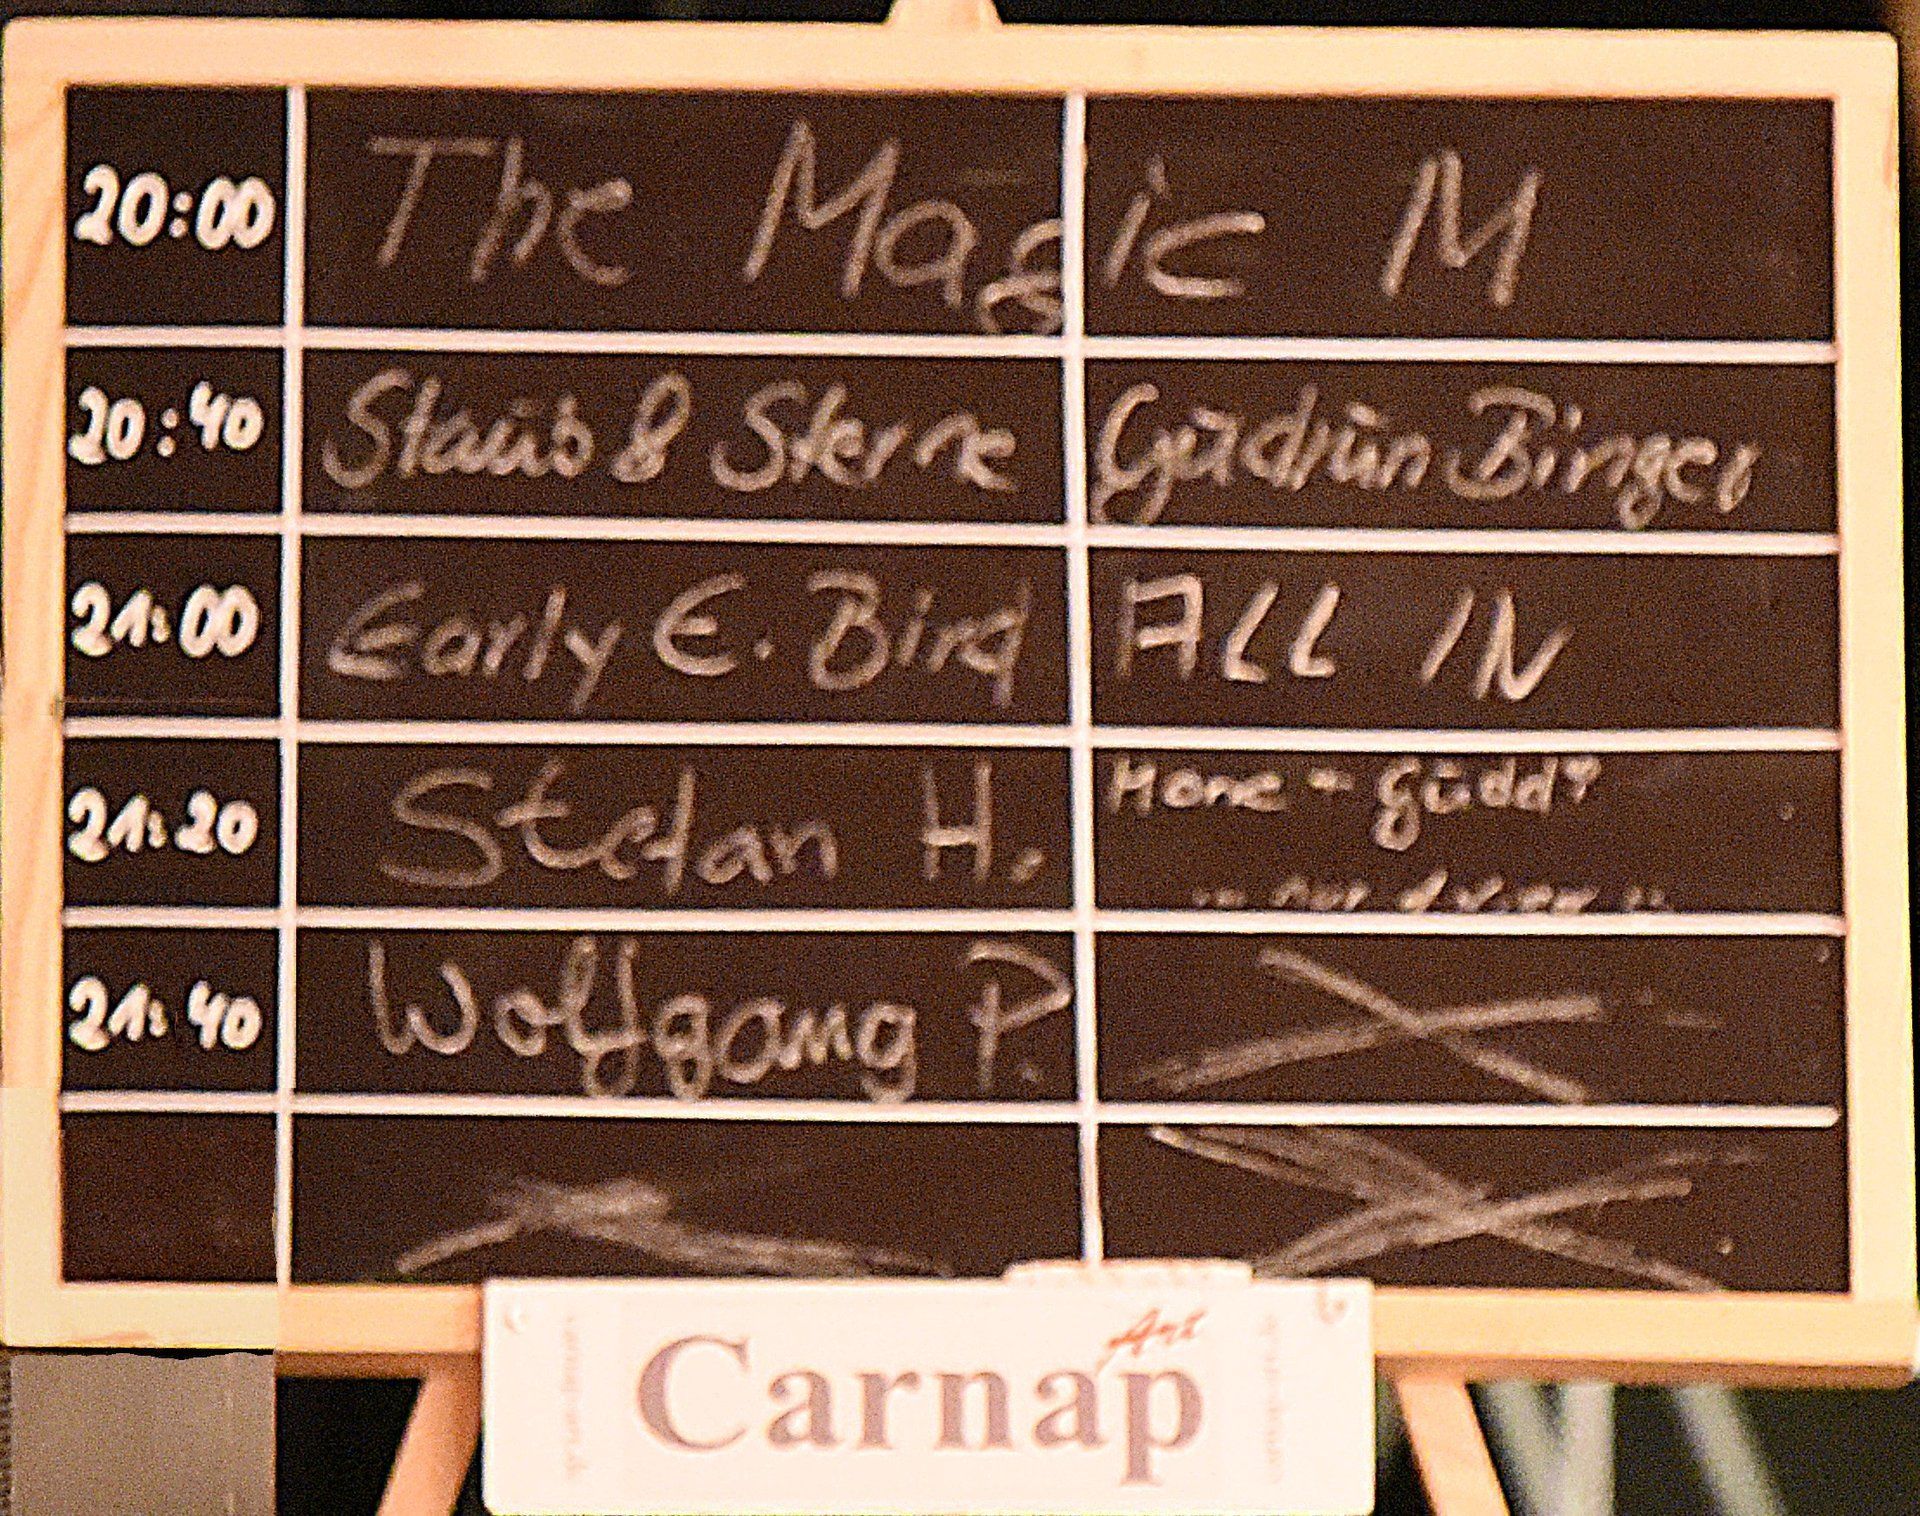 20:00 The Magic M
20:40 Staub & Sterne Gudrun Binger
21:00 Early E. Bird ALL IN
21:20 Stefan H.
21:40 Wolfgang P.
Art
Carnap